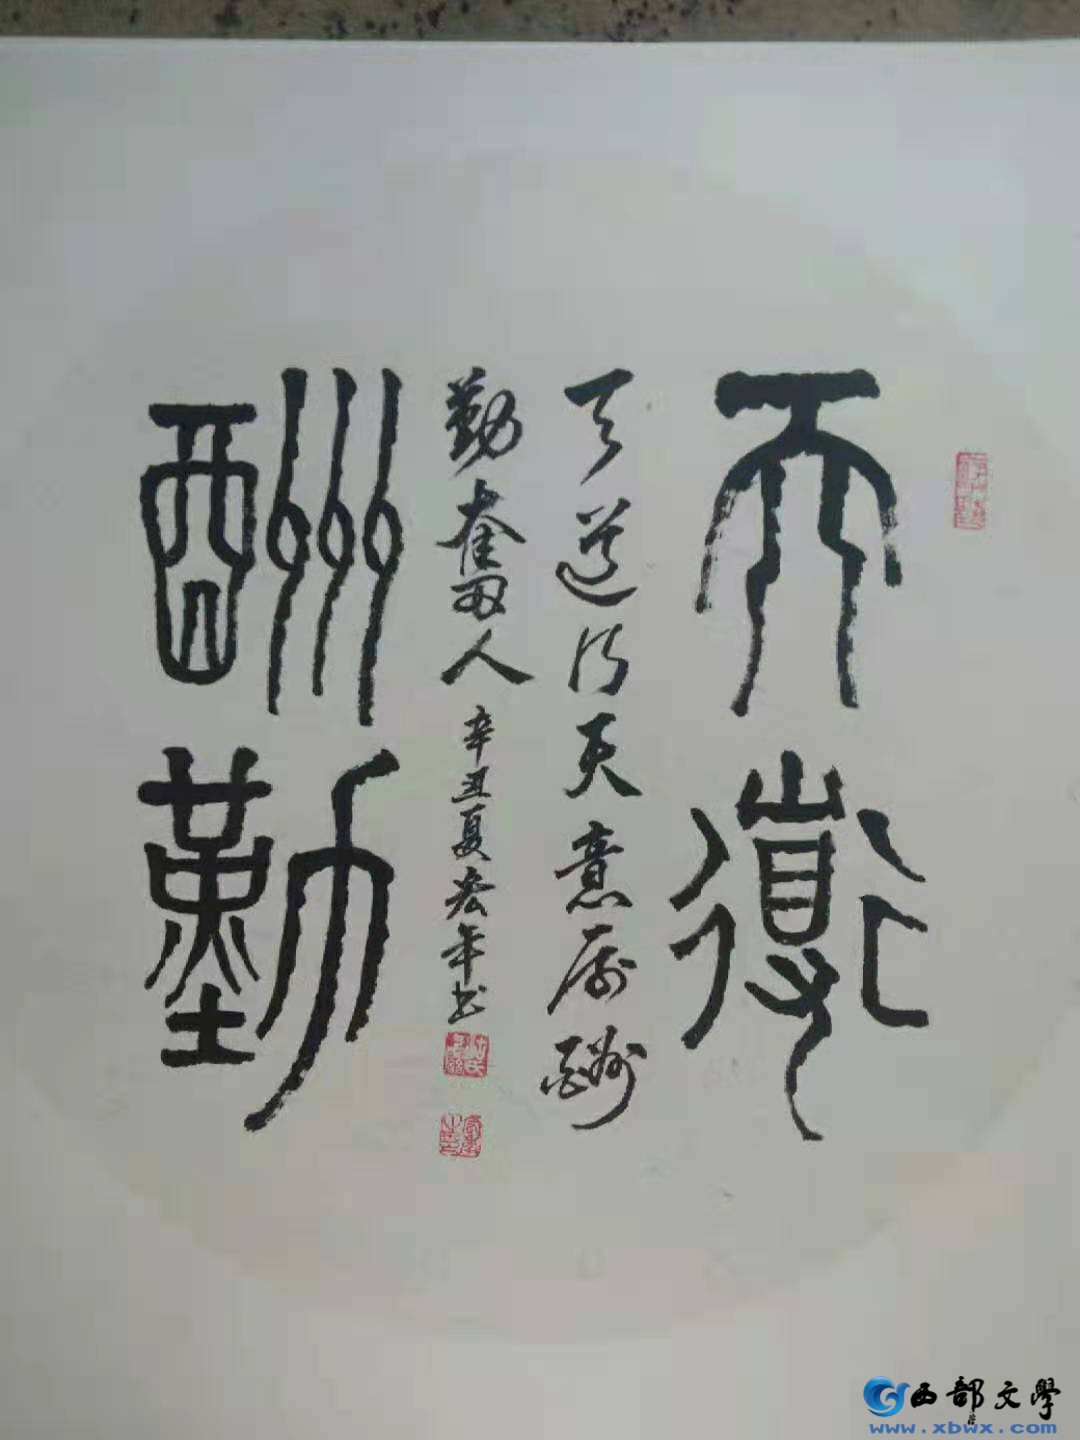 天道
酬勤
天道行天意厚酬
勤奮人 辛丑夏宏年书
西部文學
www.xbwx.com